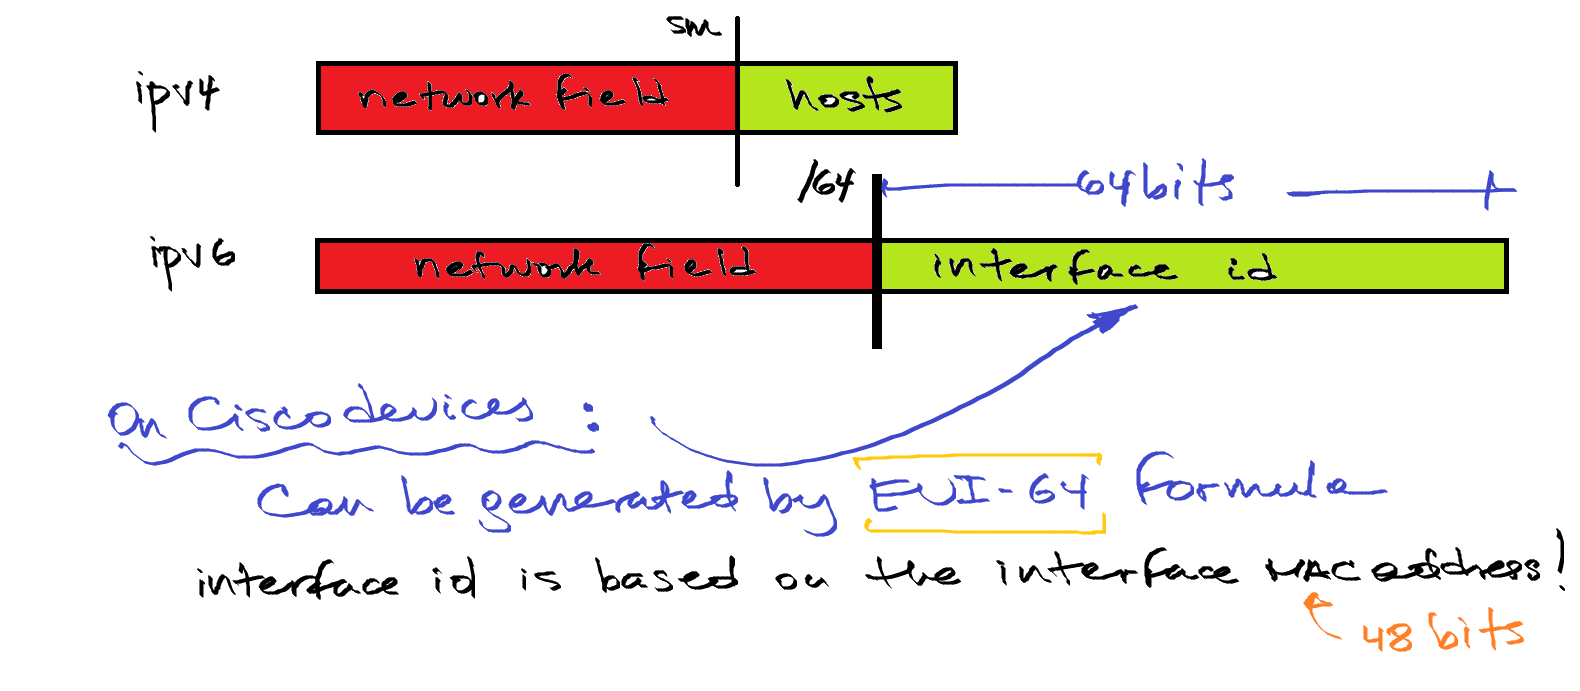 sm
ipv4 network field hosts
/64 64 bits
ipv6 network field interface id
On Cisco devices :
Can be generated by EUI-64 formula
interface id is based on the interface MAC address!
48 bits